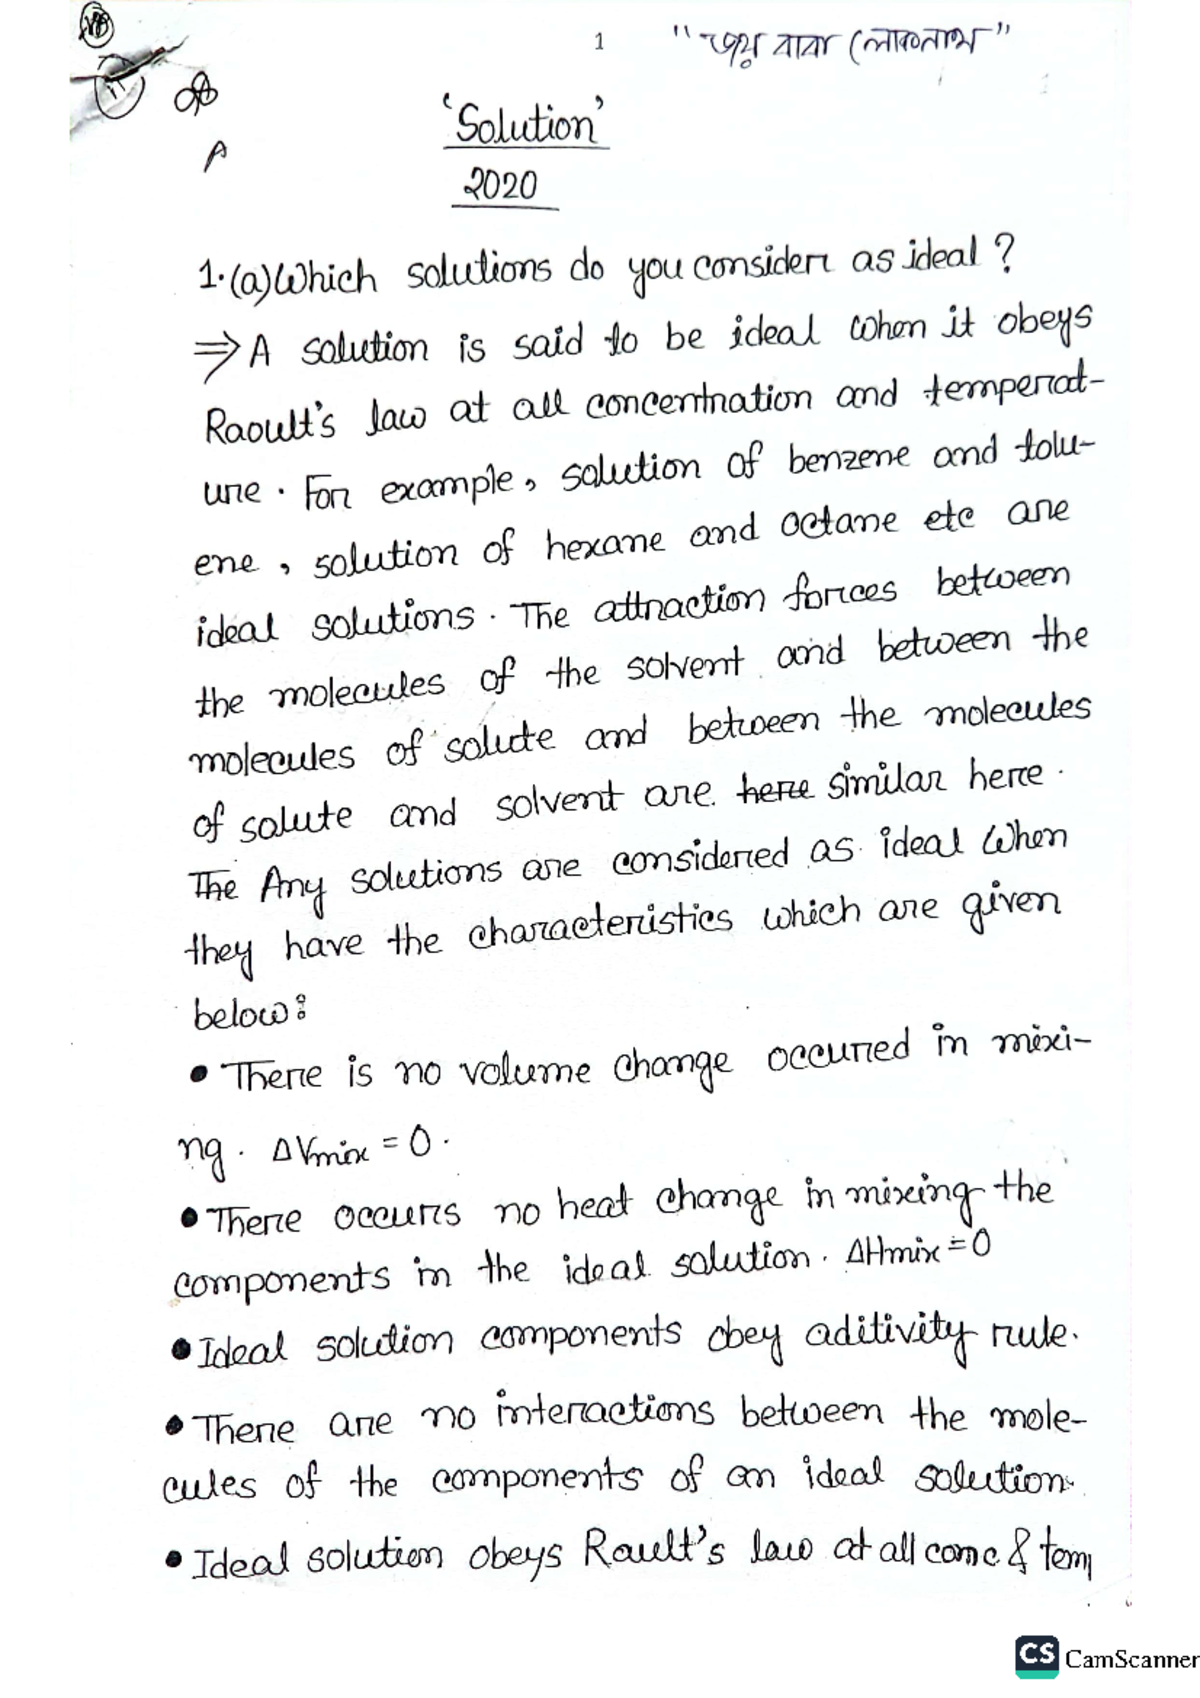 1 "জয় বাবা লোকনাথ"
1
'Solution'
A
2020
1.(a) Which solutions do you consider as ideal ?
⇒ A solution is said to be ideal when it obeys
Raoult's law at all concentration and temperat-
ure. For example, solution of benzene and tolu-
ene, solution of hexane and octane etc are
ideal solutions. The attraction forces between
the molecules of the solvent and between the
molecules of solute and between the molecules
of solute and solvent are here similar here.
The Any solutions are considered as ideal when
they have the characteristics which are given
below:
• There is no volume change occurred in mixi-
ng. ΔVmix = 0.
• There occurs no heat change in mixing the
components in the ideal solution. ΔHmix = 0
• Ideal solution components obey aditivity rule.
• There are no interactions between the mole-
cules of the components of an ideal solution.
• Ideal solution obeys Rault's law at all conc & tem
CS CamScanner